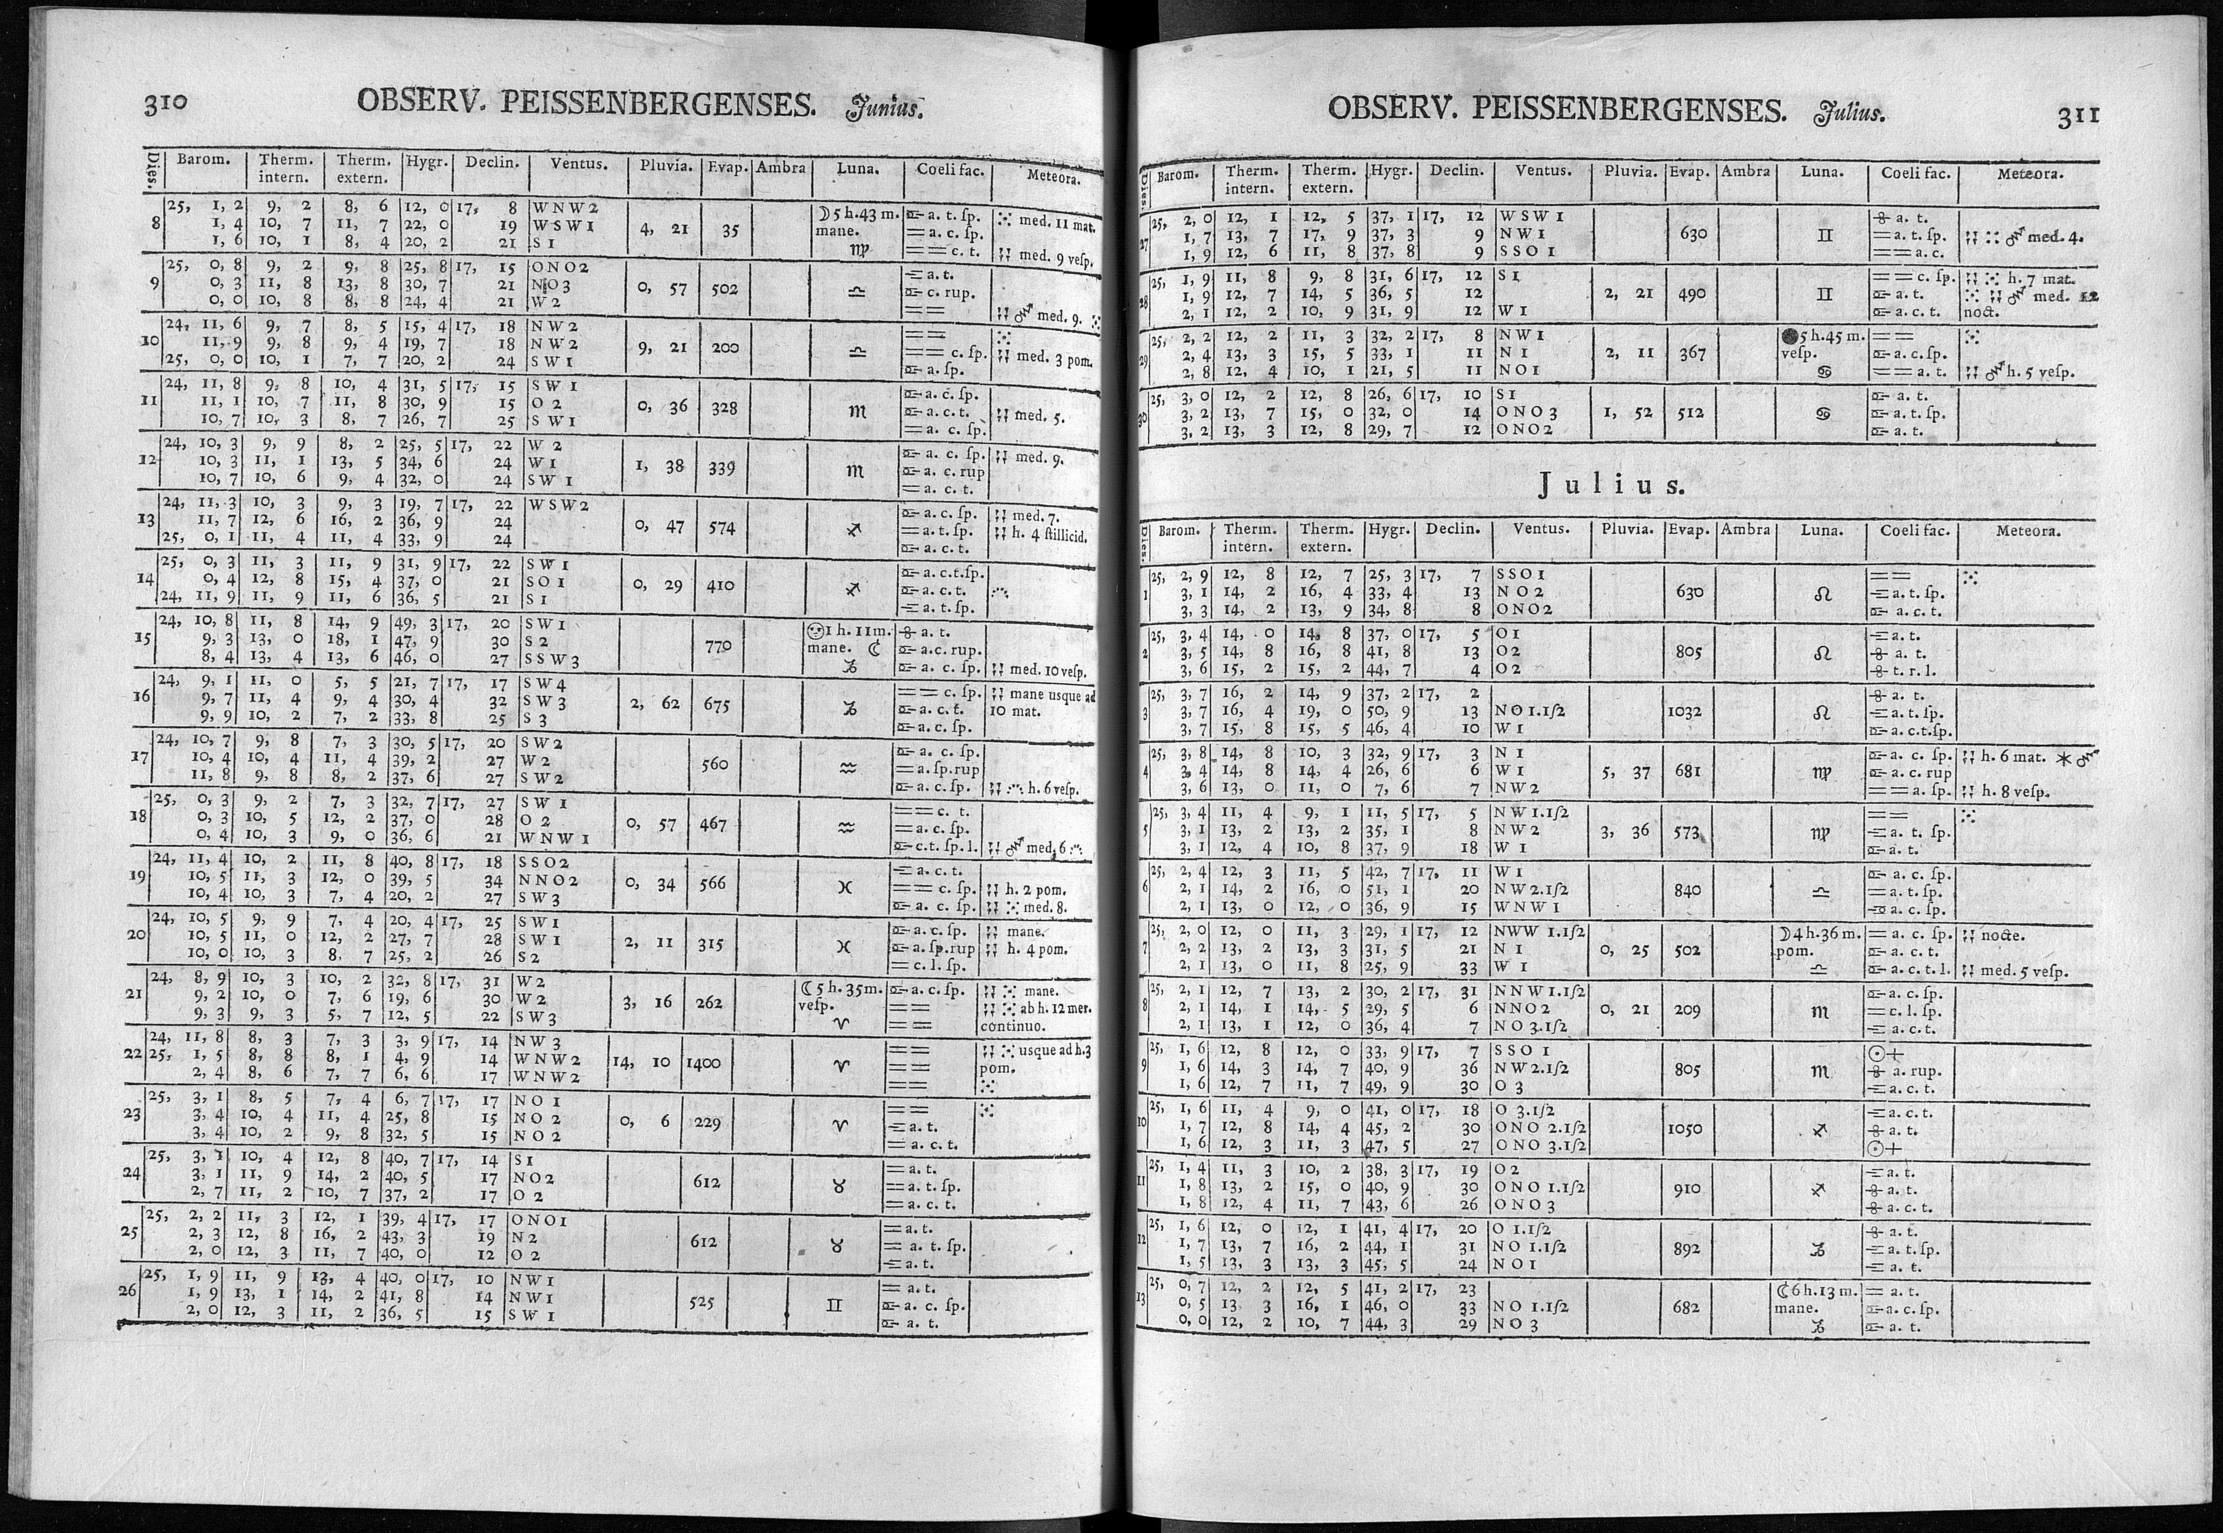 310 OBSERV. PEISSENBERGENSES. Junius.
Dies. Barom. Therm. intern. Therm. extern. Hygr. Declin. Ventus. Pluvia. Evap. Ambra Luna. Coeli fac. Meteora.
8 25, 1, 2 9, 2 8, 6 12, 0 17, 8 WNW2 4, 21 35 ☽5 h.43 m. mane. ♍ a. t. ſp. med. 11 mat.
1, 4 10, 7 11, 7 22, 0 19 WSW1 = a. c. ſp.
1, 6 10, 1 8, 4 20, 2 21 S1 == c. t. med. 9 veſp.
9 25, 0, 8 9, 2 9, 8 25, 8 17, 15 ONO2 0, 57 502 ♎ a. t.
0, 3 11, 8 13, 8 30, 7 21 NO3 c. rup.
0, 0 10, 8 8, 8 24, 4 21 W2 == med. 9.
10 24, 11, 6 9, 7 8, 5 15, 4 17, 18 NW2 9, 21 200 ♎ ==
11, 9 9, 8 9, 4 19, 7 18 NW2 == c. ſp. med. 3 pom.
25, 0, 0 10, 1 7, 7 20, 2 24 SW1 a. ſp.
11 24, 11, 8 9, 8 10, 4 31, 5 17, 15 SW1 0, 36 328 ♏ a. c. ſp.
11, 1 10, 7 11, 8 30, 9 15 O2 a. c. t. med. 5.
10, 7 10, 3 8, 7 26, 7 25 SW1 = a. c. ſp.
12 24, 10, 3 9, 9 8, 2 25, 5 17, 22 W2 1, 38 339 ♏ a. c. ſp. med. 9.
10, 3 11, 1 13, 5 34, 6 24 W1 a. c. rup
10, 7 10, 6 9, 4 32, 0 24 SW1 = a. c. t.
13 24, 11, 3 10, 3 9, 3 19, 7 17, 22 WSW2 0, 47 574 ♐ a. c. ſp. med. 7.
11, 7 12, 6 16, 2 36, 9 24 = a. t. ſp. h. 4 ſtillicid.
25, 0, 1 11, 4 11, 4 33, 9 24 a. c. t.
14 25, 0, 3 11, 3 11, 9 31, 9 17, 22 SW1 0, 29 410 ♐ a. c.t.ſp.
0, 4 12, 8 15, 4 37, 0 21 SO1 a. c. t.
24, 11, 9 11, 9 11, 6 36, 5 21 S1 a. t. ſp.
15 24, 10, 8 11, 8 14, 9 49, 3 17, 20 SW1 770 1 h. 11m. mane. ☾ ♑ a. t.
9, 3 13, 0 18, 1 47, 9 30 S2 a.c. rup.
8, 4 13, 4 13, 6 46, 0 27 SSW3 a. c. ſp. med. 10 veſp.
16 24, 9, 1 11, 0 5, 5 21, 7 17, 17 SW4 2, 62 675 ♑ == c. ſp. mane usque ad
9, 7 11, 4 9, 4 30, 4 32 SW3 a. c. t. 10 mat.
9, 9 10, 2 7, 2 33, 8 25 S3 a. c. ſp.
17 24, 10, 7 9, 8 7, 3 30, 5 17, 20 SW2 560 ♒ a. c. ſp.
10, 4 10, 4 11, 4 39, 2 27 W2 = a. ſp. rup
11, 8 9, 8 8, 2 37, 6 27 SW2 a. c. ſp. h. 6 veſp.
18 25, 0, 3 9, 2 7, 3 32, 7 17, 27 SW1 0, 57 467 ♒ == c. t.
0, 3 10, 5 12, 2 37, 0 28 O2 = a. c. ſp.
0, 4 10, 3 9, 0 36, 6 21 WNW1 c.t. ſp. l. med. 6
19 24, 11, 4 10, 2 11, 8 40, 8 17, 18 SSO2 0, 34 566 ♓ a. c. t.
10, 5 11, 3 12, 0 39, 5 34 NNO2 == c. ſp. h. 2 pom.
10, 4 10, 3 7, 4 20, 2 27 SW3 a. c. ſp. med. 8.
20 24, 10, 5 9, 9 7, 4 20, 4 17, 25 SW1 2, 11 315 ♓ a. c. ſp. mane.
10, 5 11, 0 12, 2 27, 7 28 SW1 a. ſp. rup h. 4 pom.
10, 0 10, 3 8, 7 25, 2 26 S2 = c. l. ſp.
21 24, 8, 9 10, 3 10, 2 32, 8 17, 31 W2 3, 16 262 ☾5 h. 35m. veſp. ♈ a. c. ſp. mane.
9, 2 10, 0 7, 6 19, 6 30 W2 == ab h. 12 mer.
9, 3 9, 3 5, 7 12, 5 22 SW3 == continuo.
22 24, 11, 8 8, 3 7, 3 3, 9 17, 14 NW3 14, 10 1400 ♈ == usque ad h.3
25, 1, 5 8, 8 8, 1 4, 9 14 WNW2 == pom.
2, 4 8, 6 7, 7 6, 6 17 WNW2 ==
23 25, 3, 1 8, 5 7, 4 6, 7 17, 17 NO1 0, 6 229 ♈ ==
3, 4 10, 4 11, 4 25, 8 15 NO2 a. t.
3, 4 10, 2 9, 8 32, 5 15 NO2 = a. c. t.
24 25, 3, 1 10, 4 12, 8 40, 7 17, 14 S1 612 ♉ = a. t.
3, 1 11, 9 14, 2 40, 5 17 NO2 = a. t. ſp.
2, 7 11, 2 10, 7 37, 2 17 O2 = a. c. t.
25 25, 2, 2 11, 3 12, 1 39, 4 17, 17 ONO1 612 ♉ = a. t.
2, 3 12, 8 16, 2 43, 3 19 N2 = a. t. ſp.
2, 0 12, 3 11, 7 40, 0 12 O2 a. t.
26 25, 1, 9 11, 9 13, 4 40, 0 17, 10 NW1 525 ♊ = a. t.
1, 9 13, 1 14, 2 41, 8 14 NW1 a. c. ſp.
2, 0 12, 3 11, 2 36, 5 15 SW1 a. t.
OBSERV. PEISSENBERGENSES. Julius. 311
Dies. Barom. Therm. intern. Therm. extern. Hygr. Declin. Ventus. Pluvia. Evap. Ambra Luna. Coeli fac. Meteora.
27 25, 2, 0 12, 1 12, 5 37, 1 17, 12 WSW1 630 ♊ a. t.
1, 7 13, 7 17, 9 37, 3 9 NW1 = a. t. ſp. med. 4.
1, 9 12, 6 11, 8 37, 8 9 SSO1 == a. c.
28 25, 1, 9 11, 8 9, 8 31, 6 17, 12 S1 2, 21 490 ♊ == c. ſp. h. 7 mat.
1, 9 12, 7 14, 5 36, 5 12 a. t. med. 12
2, 1 12, 2 10, 9 31, 9 12 W1 a. c. t. noct.
29 25, 2, 2 12, 2 11, 3 32, 2 17, 8 NW1 2, 11 367 ●5 h. 45 m. veſp. ♋ ==
2, 4 13, 3 15, 5 33, 1 11 N1 a. c. ſp.
2, 8 12, 4 10, 1 21, 5 11 NO1 == a. t. h. 5 veſp.
30 25, 3, 0 12, 2 12, 8 26, 6 17, 10 S1 1, 52 512 ♋ a. t.
3, 2 13, 7 15, 0 32, 0 14 ONO3 a. t. ſp.
3, 2 13, 3 12, 8 29, 7 12 ONO2 a. t.
Julius.
Dies. Barom. Therm. intern. Therm. extern. Hygr. Declin. Ventus. Pluvia. Evap. Ambra Luna. Coeli fac. Meteora.
1 25, 2, 9 12, 8 12, 7 25, 3 17, 7 SSO1 630 ♌ ==
3, 1 14, 2 16, 4 33, 4 13 NO2 a. t. ſp.
3, 3 14, 2 13, 9 34, 8 8 ONO2 a. c. t.
2 25, 3, 4 14, 0 14, 8 37, 0 17, 5 O1 805 ♌ a. t.
3, 5 14, 8 16, 8 41, 8 13 O2 a. t.
3, 6 15, 2 15, 2 44, 7 4 O2 t. r. l.
3 25, 3, 7 16, 2 14, 9 37, 2 17, 2 1032 ♌ a. t.
3, 7 16, 4 19, 0 50, 9 13 NO1.1ſ2 a. t. ſp.
3, 7 15, 8 15, 5 46, 4 10 W1 a. c.t.ſp.
4 25, 3, 8 14, 8 10, 3 32, 9 17, 3 N1 5, 37 681 ♍ a. c. ſp. h. 6 mat.
3, 4 14, 8 14, 4 26, 6 6 W1 a. c. rup
3, 6 13, 0 11, 0 7, 6 7 NW2 == a. ſp. h. 8 veſp.
5 25, 3, 4 11, 4 9, 1 11, 5 17, 5 NW1.1ſ2 3, 36 573 ♍ ==
3, 1 13, 2 13, 2 35, 1 8 NW2 a. t. ſp.
3, 1 12, 4 10, 8 37, 9 18 W1 a. t.
6 25, 2, 4 12, 3 11, 5 42, 7 17, 11 W1 840 ♎ a. c. ſp.
2, 1 14, 2 16, 0 51, 1 20 NW2.1ſ2 = a. t. ſp.
2, 1 13, 0 12, 0 36, 9 15 WNW1 a. c. ſp.
7 25, 2, 0 12, 0 11, 3 29, 1 17, 12 NWW 1.1ſ2 0, 25 502 ☽4 h. 36 m. pom. ♎ = a. c. ſp. nocte.
2, 2 13, 2 13, 3 31, 5 21 N1 a. c. t.
2, 1 13, 0 11, 8 25, 9 33 W1 a. c. t. l. med. 5 veſp.
8 25, 2, 1 12, 7 13, 2 30, 2 17, 31 NNW1.1ſ2 0, 21 209 ♏ a. c. ſp.
2, 1 14, 1 14, 5 29, 5 6 NNO2 = c. l. ſp.
2, 1 13, 1 12, 0 36, 4 7 NO3.1ſ2 a. c. t.
9 25, 1, 6 12, 8 12, 0 33, 9 17, 7 SSO1 805 ♏ ☉+
1, 6 14, 3 14, 7 40, 9 36 NW2.1ſ2 a. rup.
1, 6 12, 7 11, 7 49, 9 30 O3 a. c. t.
10 25, 1, 6 11, 4 9, 0 41, 0 17, 18 O3.1ſ2 1050 ♐ a. c. t.
1, 7 12, 8 14, 4 45, 2 30 ONO2.1ſ2 a. t.
1, 6 12, 3 11, 3 47, 5 27 ONO3.1ſ2 ☉+
11 25, 1, 4 11, 3 10, 2 38, 3 17, 19 O2 910 ♐ a. t.
1, 8 13, 2 15, 0 40, 9 30 ONO1.1ſ2 a. t.
1, 8 12, 4 11, 7 43, 6 26 ONO3 a. c. t.
12 25, 1, 6 12, 0 12, 1 41, 4 17, 20 O1.1ſ2 892 ♑ a. t.
1, 7 13, 7 16, 2 44, 1 31 NO1.1ſ2 a. t. ſp.
1, 5 13, 3 13, 3 45, 5 24 NO1 a. t.
13 25, 0, 7 12, 2 12, 5 41, 2 17, 23 682 ☾6 h. 13 m. mane. ♑ = a. t.
0, 5 13, 3 16, 1 46, 0 33 NO1.1ſ2 a. c. ſp.
0, 0 12, 2 10, 7 44, 3 29 NO3 a. t.